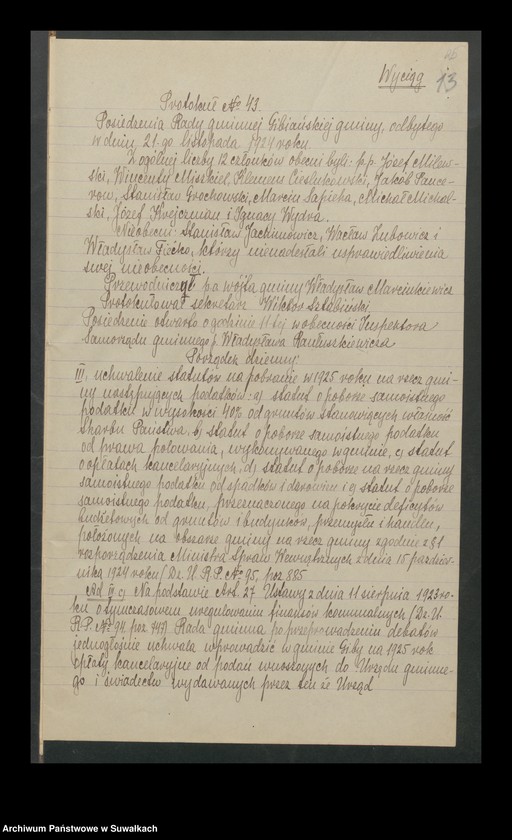 Wyciąg
13
Protokuł No 43.
Posiedzenia Rady gminnej Gibiańskiej gminy, odbytego
w dniu 21-go listopada 1924 roku.
Z ogólnej liczby 12 członków obecni byli: p.p. Józef Milew-
ski, Wincenty Misiukiel, Klemens Cieslukowski, Jakób Pance-
row, Stanisław Grochowski, Marcin Sapieha, Michał Michal-
ski, Józef Krejczman i Ignacy Wydra.
Nieobecni: Stanisław Jachimowicz, Wacław Zubowicz i
Władysław Fiećko, którzy nienadesłali usprawiedliwienia
swej nieobecności.
Przewodniczył p.o wójta gminy Władysław Marcinkiewicz
Protokułował sekretarz Wiktor Sztabiński
Posiedzenie otwarto o godzinie 11-tej w obecności Inspektora
Samorządu gminnego p. Władysława Raniuszkiewicza
Porządek dzienny:
III. uchwalenie statutów na pobranie w 1925 roku na rzecz gmi-
ny następujących podatków: a) statut o poborze samoistnego
podatku w wysokości 40% od gruntów stanowiących własność
Skarbu Państwa. b) statut o poborze samoistnego podatku
od prawa polowania, wykonywanego w gminie, c) statut
o opłatach kancelaryjnych, d) statut o poborze na rzecz gminy
samoistnego podatku od spadków i darowizn i e) statut o poborze
samoistnego podatku, przeznaczonego na pokrycie deficytów
budżetowych od gruntów i budynków, przemysłu i handlu,
położonych na obszarze gminy na rzecz gminy zgodnie z § 1
rozporządzenia Ministra Spraw Wewnętrznych z dnia 15 paździer-
nika 1924 roku (Dz. U. R. P. No 95, poz 885
Ad III c) Na podstawie Art. 27 Ustawy z dnia 11 sierpnia 1923 ro-
ku o tymczasowem uregulowaniu finansów komunalnych (Dz. U.
R. P. No 94. poz 747) Rada gminna po przeprowadzeniu debatów
jednogłośnie uchwala wprowadzić w gminie Giby na 1925 rok
opłaty kancelaryjne od podań wnoszonych do Urzędu gminne-
go i świadectw wydawanych przez ten że Urząd
Archiwum Państwowe w Suwałkach